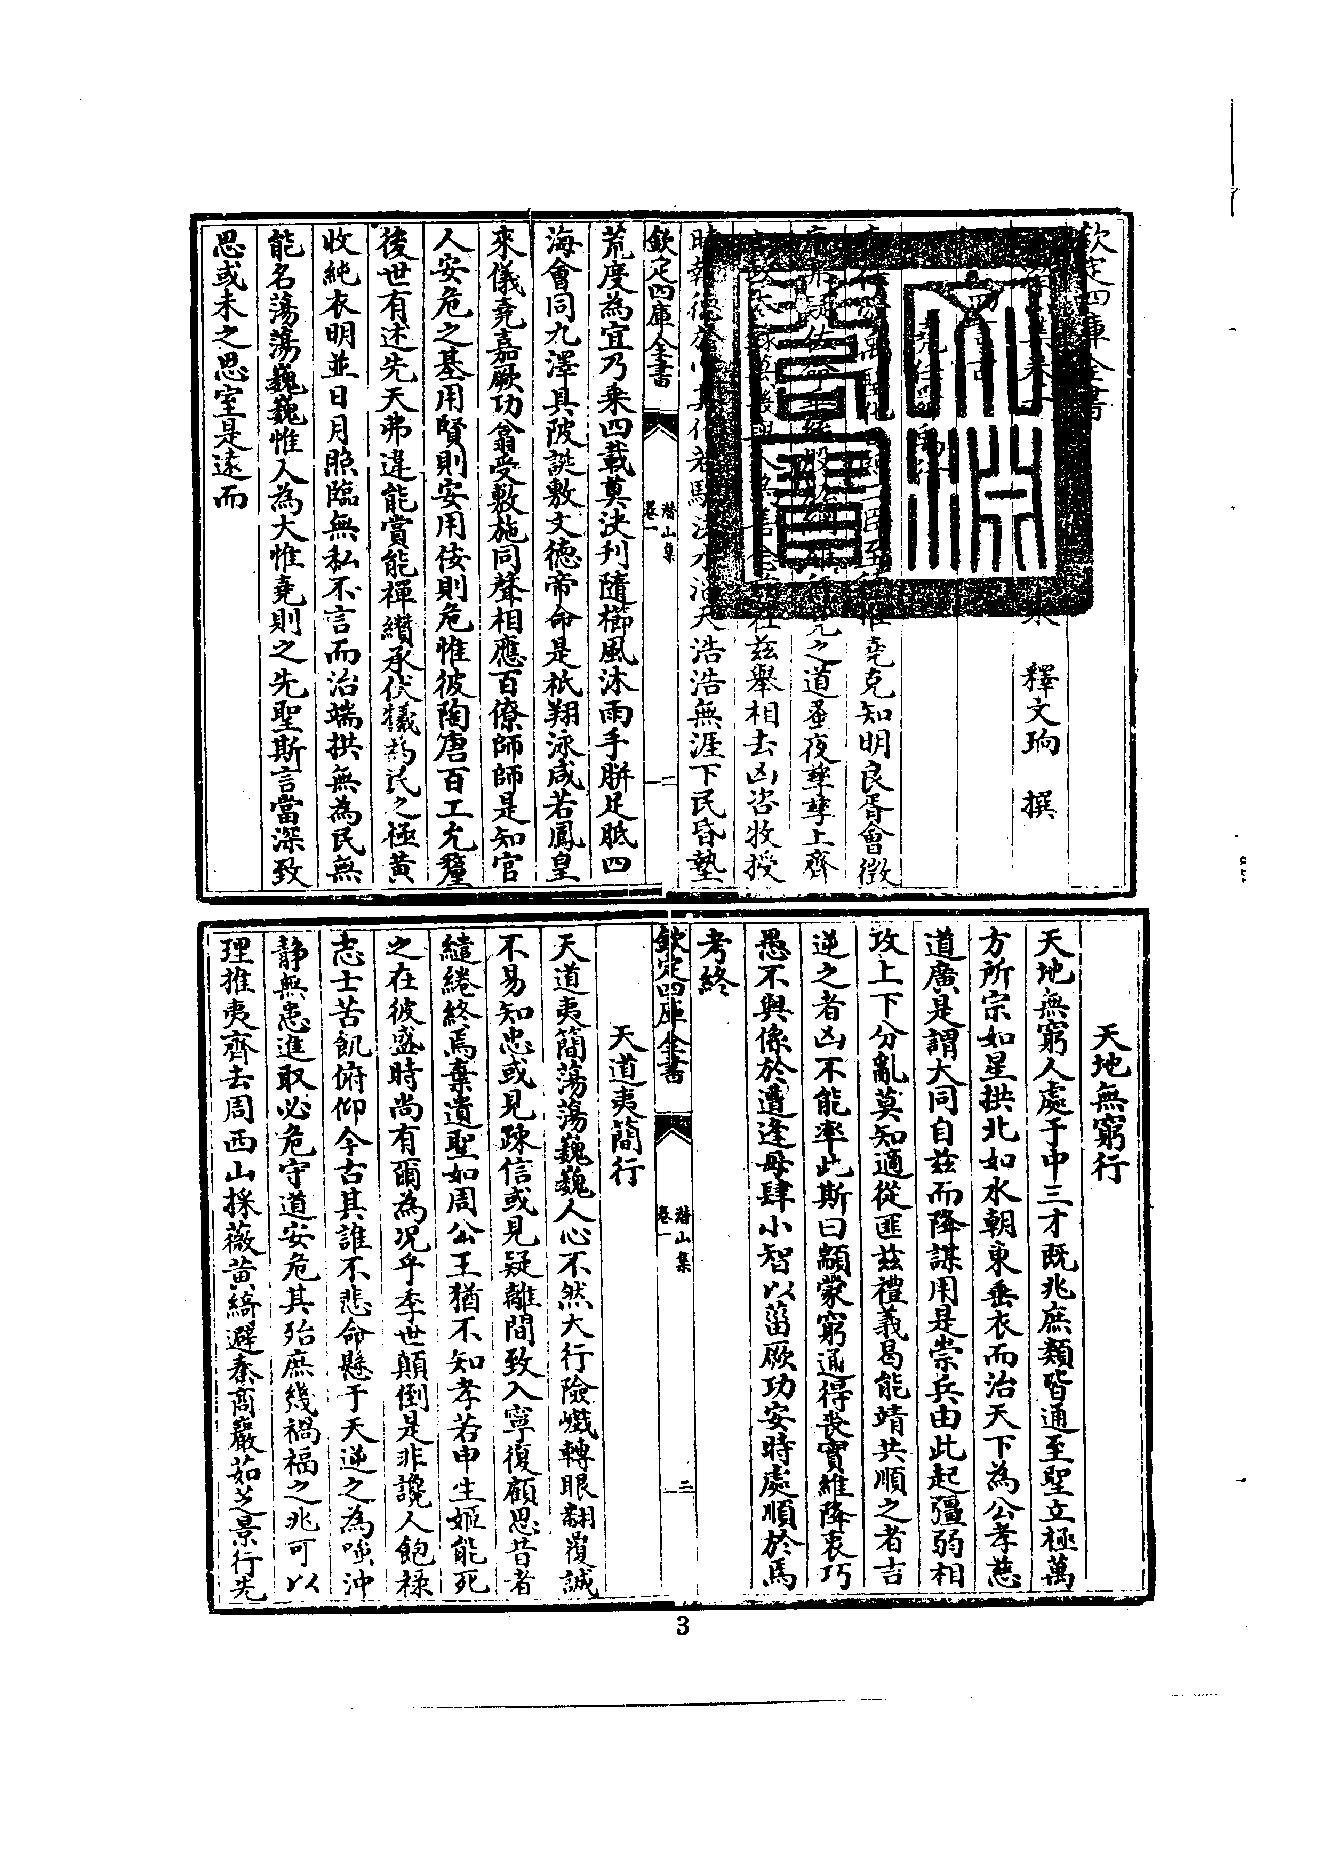 欽定四庫全書
釋文珦 撰
惟堯克知明良胥會徴
堯之道蚤夜孳孳上齊
在兹舉相去凶咨牧授
天浩浩無涯下民昏墊
欽定四庫全書
潜山集
卷一
二
荒度為宜乃乘四載奠決刋隨櫛風沐雨手胼足胝四
海會同九澤具陂誕敷文德帝命是祇翔泳咸若鳳皇
來儀堯嘉厥功翕受敷施同聲相應百僚師師是知官
人安危之基用賢則安用佞則危惟彼陶唐百工允釐
後世有述先天弗違能賞能禪纘承伏犧為民之極黄
收純衣明並日月照臨無私不言而治端拱無為民無
能名蕩蕩巍巍惟人為大惟堯則之先聖斯言當深致
思或未之思室是遠而
天地無窮行
天地無窮人處于中三才既兆庶類皆通至聖立極萬
方所宗如星拱北如水朝東垂衣而治天下為公孝慈
道廣是謂大同自兹而降謀用是崇兵由此起彊弱相
攻上下分亂莫知適從匪兹禮義曷能靖共順之者吉
逆之者凶不能率此斯曰顓蒙窮通得丧實維降衷巧
愚不與係於遭逢毋肆小智以菑厥功安時處順於焉
考終
欽定四庫全書
潜山集
卷一
三
天道夷簡行
天道夷簡蕩蕩巍巍人心不然大行險巇轉眼翻覆誠
不易知忠或見疎信或見疑離間致入寧復顧思昔者
繾綣終焉棄遺聖如周公王猶不知孝若申生姬能死
之在彼盛時尚有爾為况乎季世顛倒是非讒人飽禄
志士苦飢俯仰今古其誰不悲命懸于天逆之為嗤沖
静無恚進取必危守道安危其殆庶幾禍福之兆可以
理推夷齊去周西山採薇黄綺避秦商巖茹芝景行先
3